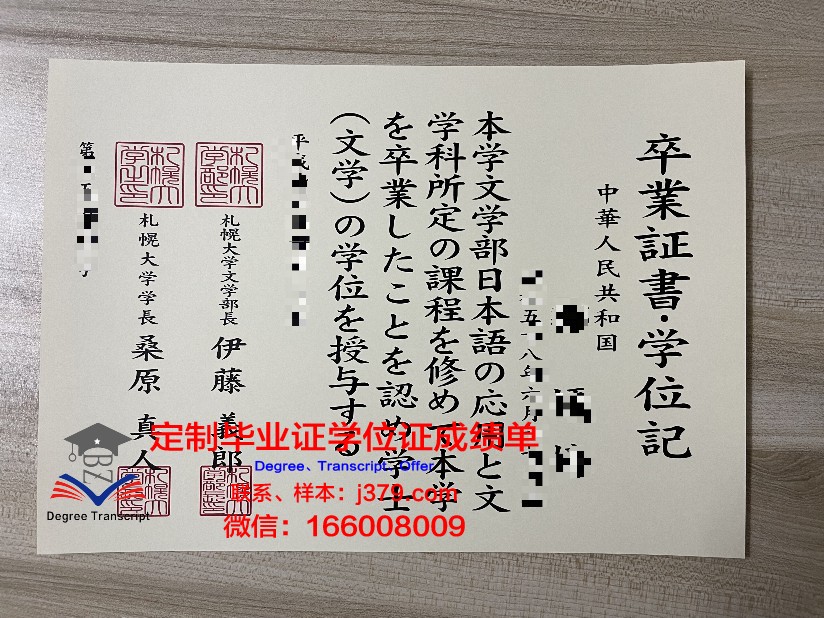 卒業証書・学位記
中華人民共和国
本学文学部日本語の応用と文
学科所定の課程を修め下本学
を卒業したことを認め学士
（文学）の学位を授与する
平成
札幌大学文学部長 伊藤 義郎
札幌大学学長 桑原 真人
第
定制毕业证学位证成绩单
Degree、Transcript、Offer
联系、样本：j379.com
微信：166008009
BZ
Degree Transcript